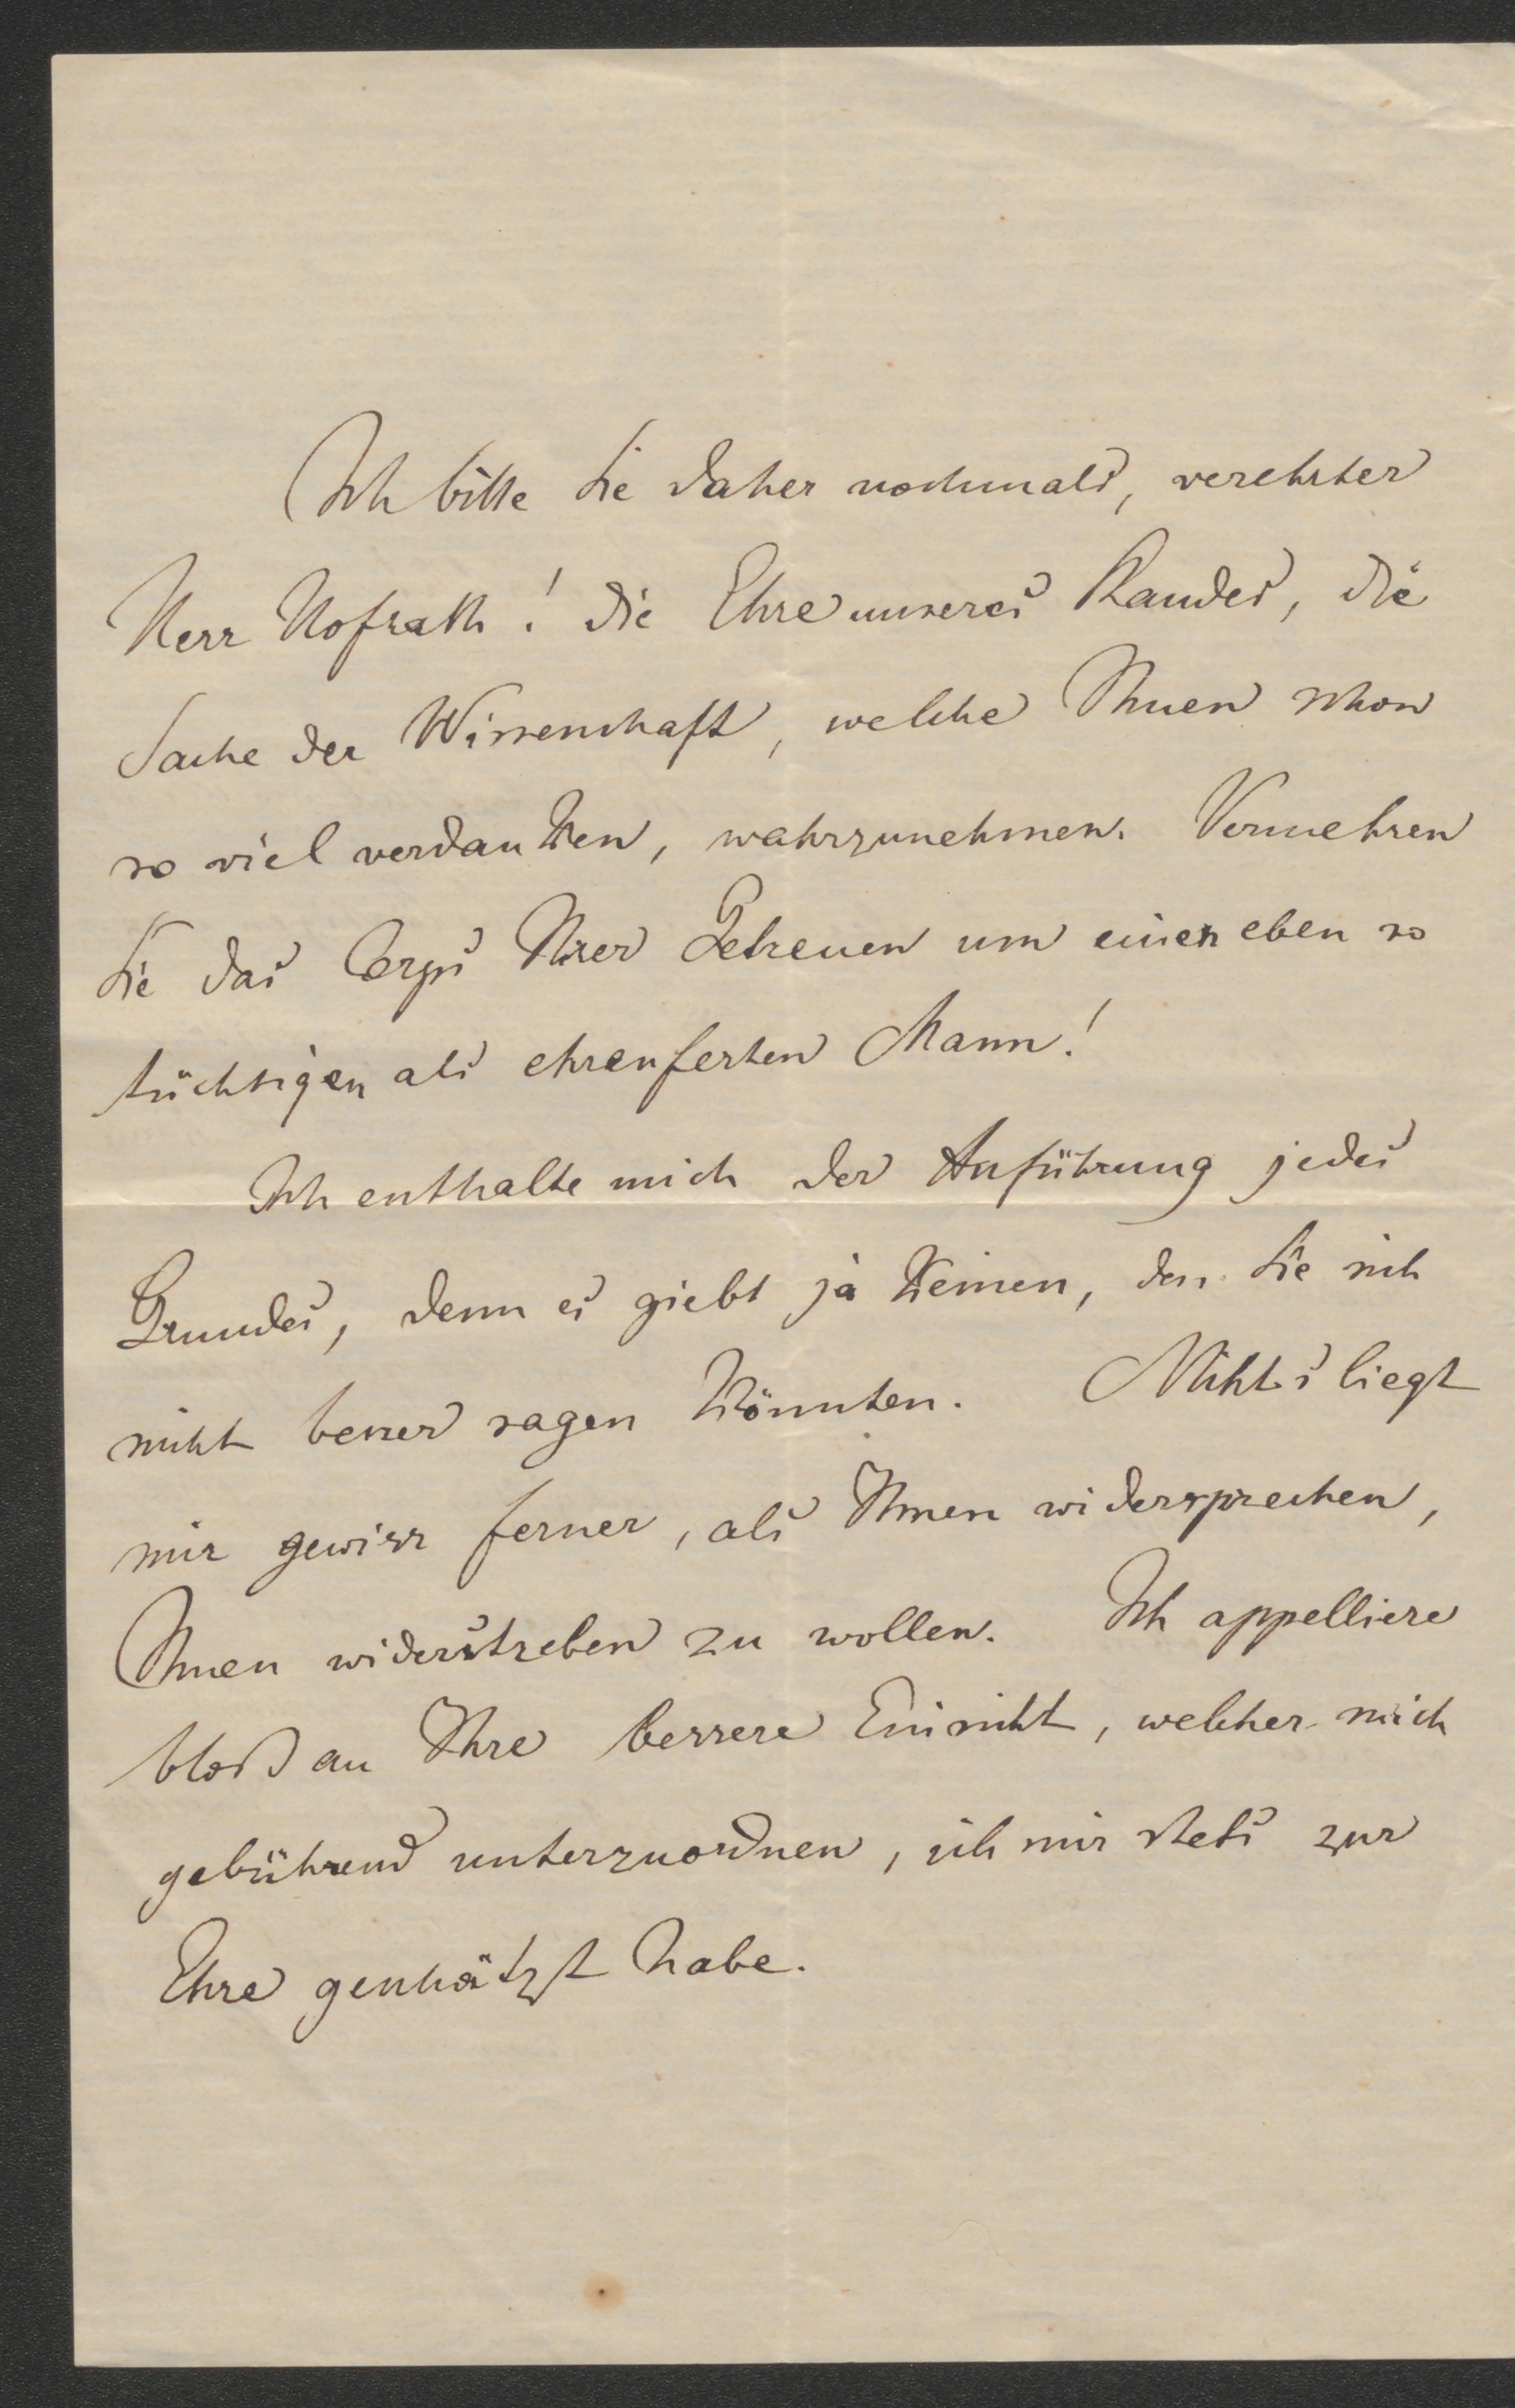 Ich bitte Sie daher nochmals, verehrter
Herr Hofrath! die Ehre unseres Standes, die
Sache der Wissenschaft, welche Ihnen schon
so viel verdanken, wahrzunehmen. Vermehren
Sie das Corps Ihrer Getreuen um einen eben so
tüchtigen als ehrenfesten Mann!
Ich enthalte mich der Anführung jedes
Grundes, denn es giebt ja keinen, den Sie sich
nicht besser sagen könnten. Nichts liegt
mir gewiss ferner, als Ihnen widersprechen,
Ihnen widerstreben zu wollen. Ich appelliere
bloß an Ihre bessere Einsicht, welcher mich
gebührend unterzuordnen, ich mir stets zur
Ehre geschätzt habe.